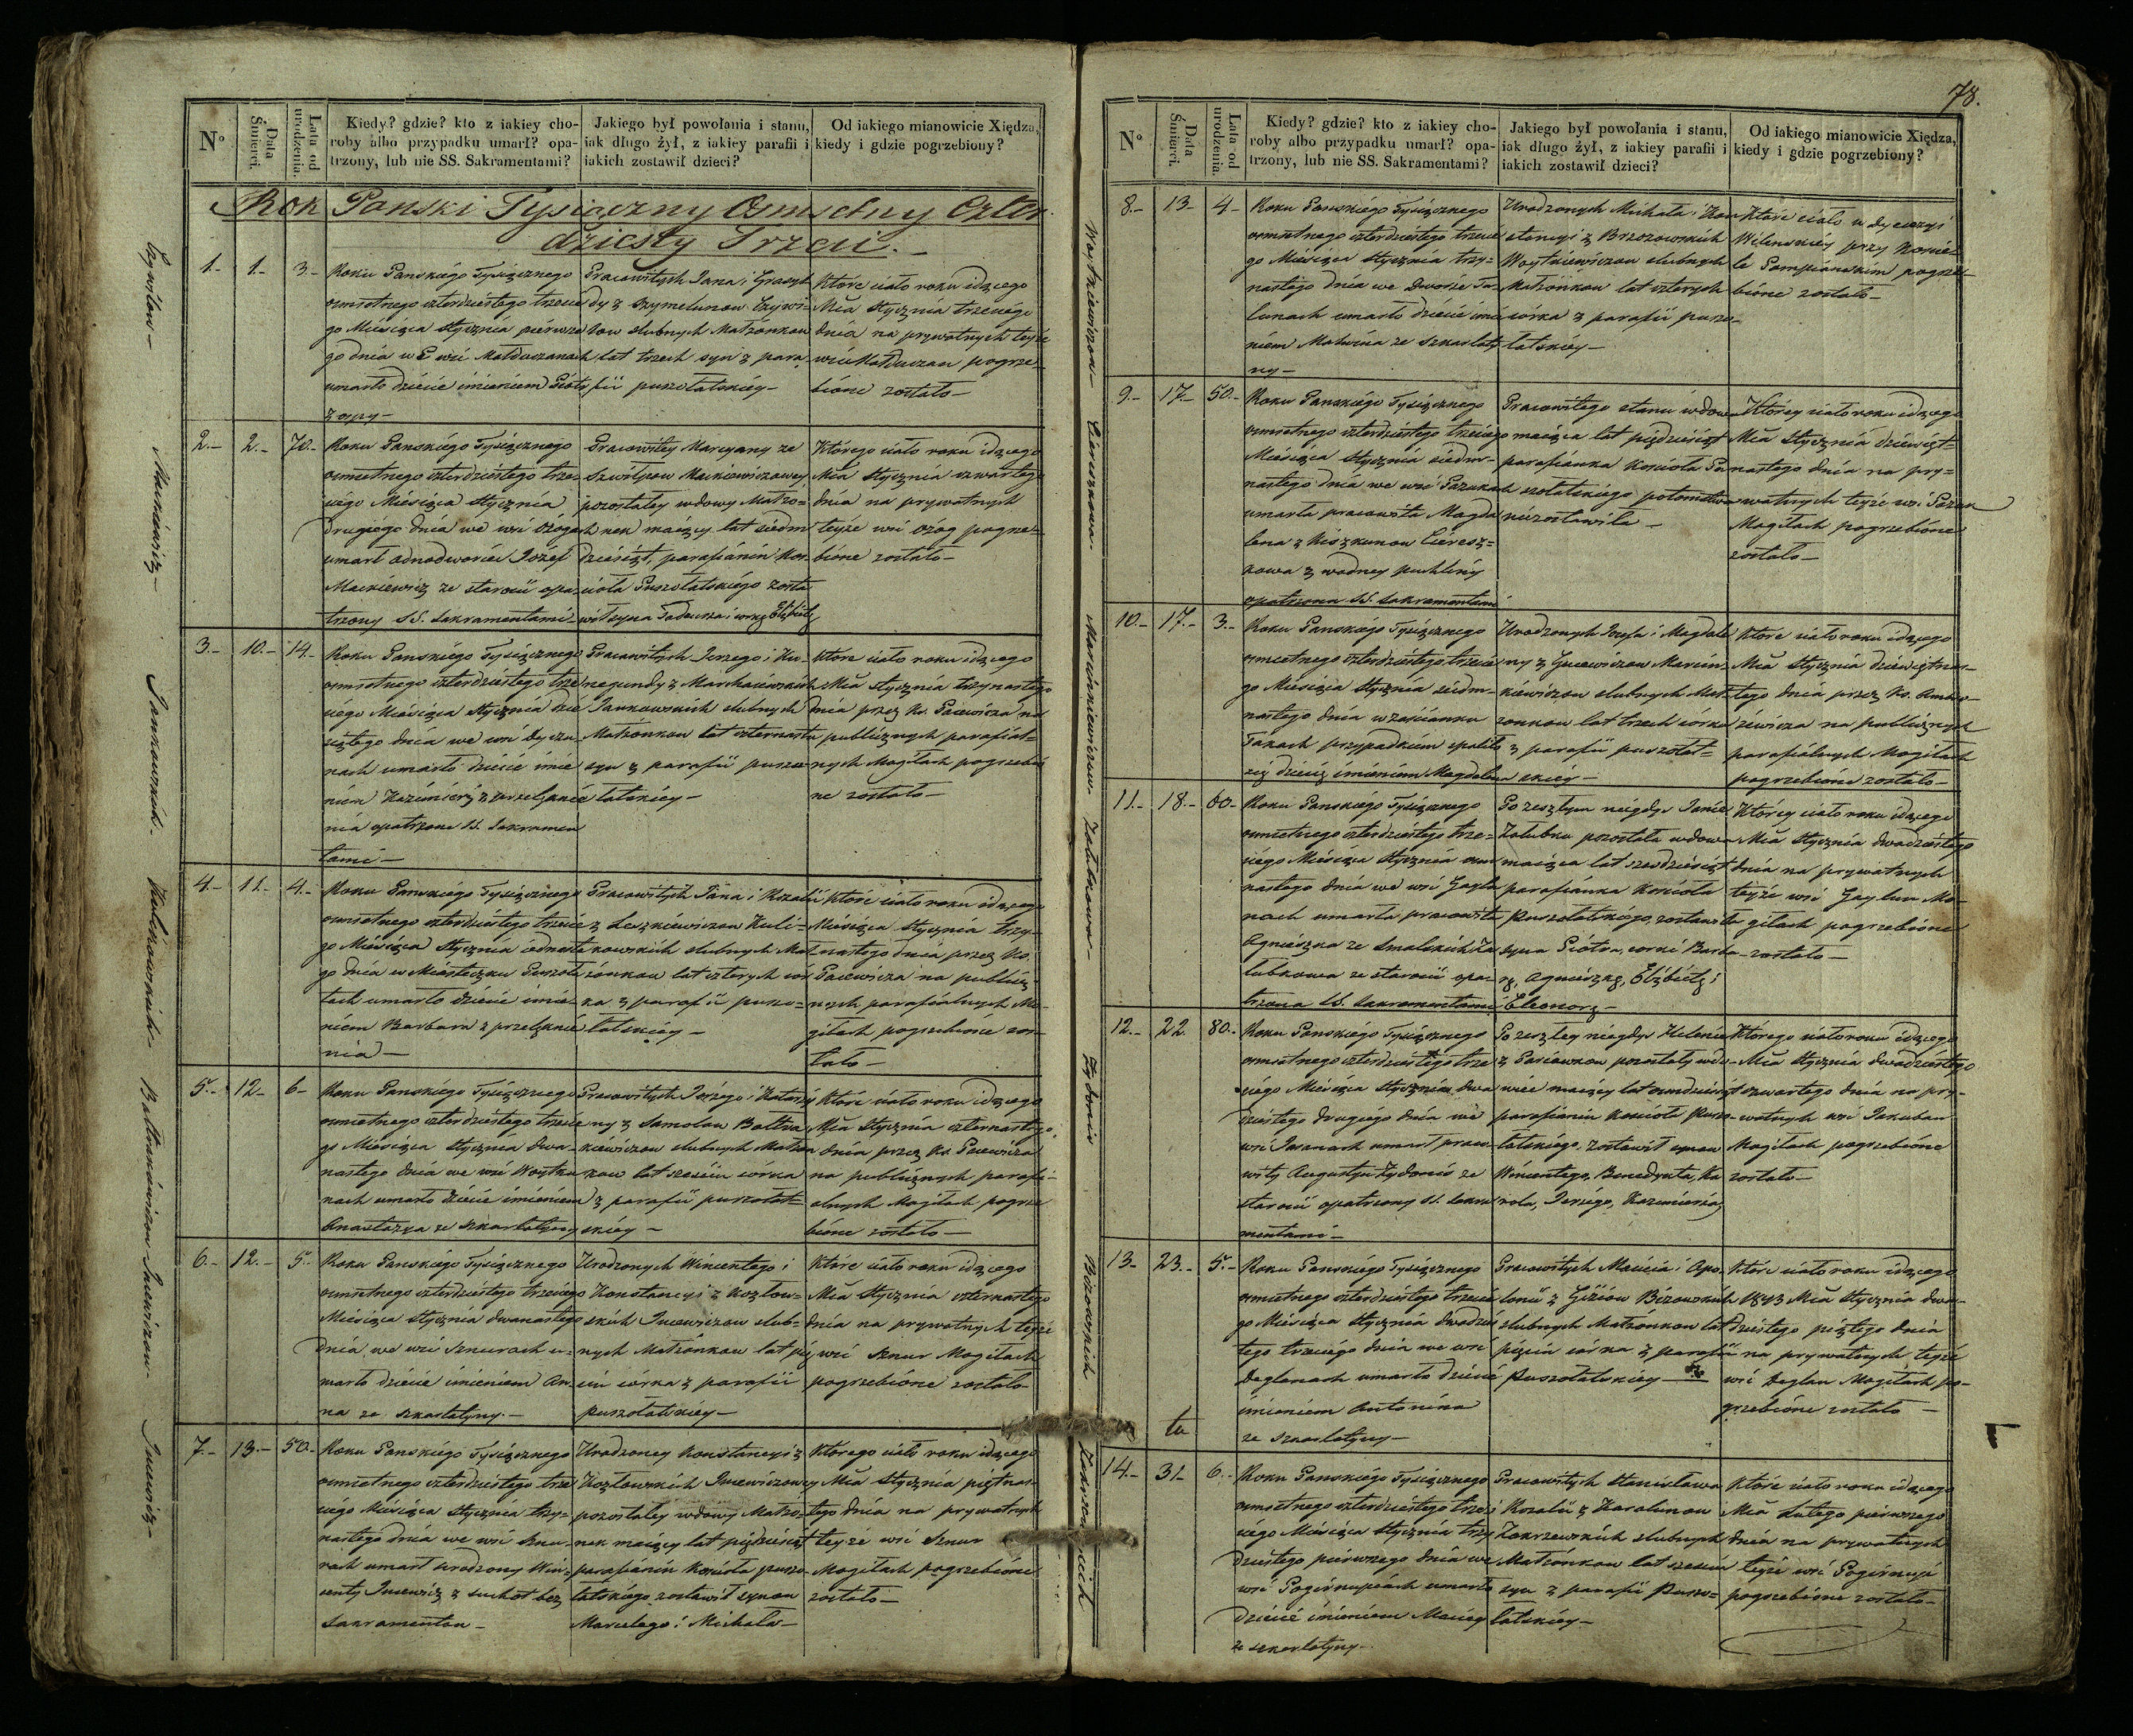 78.
N°
Data Śmierci.
Lata od urodzenia.
Kiedy? gdzie? kto z iakiey cho-
roby albo przypadku umarł? opa-
trzony, lub nie SS. Sakramentami?
Jakiego był powołania i stanu,
iak długo żył, z iakiey parafii i
iakich zostawił dzieci?
Od iakiego mianowicie Xiędza,
kiedy i gdzie pogrzebiony?
Rok Panski Tysiączny Osmsetny Czter-
dziesty Trzeci.-
1.- 1.- 3.-
Roku Panskiego Tysiącznego
osmsetnego czterdziestego trzecie
go Miesiąca stycznia pierwsze
go dnia
umarło dziecie imieniem Piotr
z ospy-
Pracowitych Jana i
lat trzech syn z para
fii puszołatskiey-
Które ciało roku idącego
Mca stycznia trzeciego
dnia na prywatnych teyże
pogrze
bione zostało-
2.- 2.- 70.-
Roku Panskiego Tysiącznego
osmsetnego czterdziestego trze-
ciego Miesiąca stycznia
drugiego dnia we wsi Ożogach
umarł Józef
Mackiewicz ze starości opa
trzony SS. Sakramentami-
Pracowitey Maryanny ze
Mackiewiczowey
pozostałey wdowy Małżo-
nek maiący lat siedm
dziesiąt, parafianin Koś-
cioła Puszołatskiego zosta
wił syna Tadeusza i corkę Elżbietę
Którego ciało roku idącego
Mca stycznia czwartego
dnia na prywatnych
teyże wsi Ożog pogrze-
bione zostało-
3.- 10.- 14.-
Roku Panskiego Tysiącznego
osmsetnego czterdziestego trze
ciego Miesiąca stycznia dzie
siątego dnia we wsi
nach umarło dziecie imie
niem Kazimierz z przelęknie
nia opatrzone SS. Sakramen
tami-
Pracowitych Jerzego i Ku-
negundy z
Jankowskich slubnych
Małżonkow lat czternastu
syn z parafii puszo
łatskiey-
Które ciało roku idącego
Mca stycznia trzynastego
dnia przez Ks. Paiewicza na
publicznych parafial-
nych Mogiłach pogrzebio
ne zostało-
4.- 11.- 4.-
Roku Panskiego Tysiącznego
osmsetnego czterdziestego trzecie
go Miesiąca stycznia iedenaste
go dnia w Miasteczku Puszoła
tach umarło dziecie imie-
niem Barbara z przelęknie
nia-
Pracowitych Jana i Rozalii
z Leszkiewiczow Kuli-
kowskich slubnych Mał-
żonkow lat czterych cór
ka z parafii puszo-
łatskiey-
Które ciało roku idącego
Miesiąca stycznia trzy-
nastego dnia przez Ks.
Paiewicza na publicz-
nych parafialnych Mo-
giłach pogrzebione zos-
tało-
5.- 12.- 6-
Roku Panskiego Tysiącznego
osmsetnego czterdziestego trzecie
go Miesiąca stycznia dwu-
nastego dnia we wsi
nach umarło dziecie imieniem
Anastazya ze szkarlatyny
Pracowitych Jerzego i Katarzy
ny z
slubnych Małżon
kow lat sześciu córka
z parafii puszołat-
skiey-
Które ciało roku idącego
Mca stycznia czternastego
dnia przez Ks. Paiewicza
na publicznych parafi-
alnych Mogiłach pogrze
bione zostało-
6.- 12.- 5.-
Roku Panskiego Tysiącznego
osmsetnego czterdziestego trzeciego
Miesiąca stycznia dwunastego
dnia we wsi Sznurach u-
marło dziecie imieniem An-
na ze szkarlatyny.-
Urodzonych Wincentego i
Konstancyi z Kozłow-
skich Jucewiczow slub-
nych Małżonkow lat pię
ciu córka z parafii
puszołatskiey-
Które ciało roku idącego
Mca stycznia czternastego
dnia na prywatnych teyże
wsi Sznur Mogiłach
pogrzebione zostało
7.- 13.- 50.-
Roku Panskiego Tysiącznego
osmsetnego czterdziestego trze
ciego Miesiąca stycznia trzy-
nastego dnia we wsi Sznu-
rach umarł urodzony Win-
centy Jucewicz z suchot bez
sakramentow-
Urodzoney Konstancyi z
Kozłowskich Jucewiczowey
pozostałey wdowy Małżo-
nek maiący lat pięćdziesiąt
parafianin Kościoła puszo-
łatskiego zostawił synow
Marcelego i Michała-
Którego ciało roku idącego
Mca stycznia piętnas-
tego dnia na prywatnych
teyże wsi Sznur
Mogiłach pogrzebione
zostało-
N°
Data Śmierci.
Lata od urodzenia.
Kiedy? gdzie? kto z iakiey cho-
roby albo przypadku umarł? opa-
trzony, lub nie SS. Sakramentami?
Jakiego był powołania i stanu,
iak długo żył, z iakiey parafii i
iakich zostawił dzieci?
Od iakiego mianowicie Xiędza,
kiedy i gdzie pogrzebiony?
8.- 13- 4-
Roku Panskiego Tysiącznego
osmsetnego czterdziestego trzecie
go Miesiąca stycznia trzy-
nastego dnia we Dworze
umarło dziecie imie
niem Malwina ze szkarlaty
ny-
Urodzonych Michała i Kon
stancyi z Brzozowskich
Woytkiewiczow slubnych
Małżonkow lat czterych
córka z parafii puszo-
łatskiey-
Które ciało w dyecezyi
Wilenskiey przy Koście-
le Pompianskim pogrze-
bione zostało-
9.- 17.- 50.-
Roku Panskiego Tysiącznego
osmsetnego czterdziestego trzeciego
Miesiąca stycznia siedm-
nastego dnia we wsi
umarła pracowita Magda
lena z
z wodney puchliny
opatrzona SS. Sakramentami
Pracowitego stanu wdowa
maiąca lat pięćdziesiąt
parafianka Kościoła Pu
szołatskiego potomstwa
niezostawiła-
Którey ciało roku idącego
Mca stycznia dziewięt-
nastego dnia na pry-
watnych teyże wsi
Mogiłach pogrzebione
zostało-
10.- 17.- 3.-
Roku Panskiego Tysiącznego
osmsetnego czterdziestego trzecie
go Miesiąca stycznia siedm-
nastego dnia w zaścianku
przypadkiem spaliło
się dziecie imieniem Magdalena
Urodzonych Józefa i Magdale
ny z
slubnych Mał
żonkow lat trzech córka
z parafii puszołat-
skiey-
Które ciało roku idącego
Mca stycznia dziewiętnas-
tego dnia przez Ks.
na publicznych
parafialnych Mogiłach
pogrzebione zostało-
11.- 18.- 60-
Roku Panskiego Tysiącznego
osmsetnego czterdziestego trze-
ciego Miesiąca stycznia osm
nastego dnia we wsi
umarła pracowita
Agnieszka ze Smalskich Za
łubkowa ze starości opa-
trzona SS. Sakramentami
Po zeszłym niegdyś Janie
Załubku pozostała wdowa
maiąca lat sześdziesiąt
parafianka Kościoła
Puszołatskiego, zostawiła
syna Piotra, corki Barba-
rę, Agnieszkę, Elżbietę i
Eleonorę-
Którey ciało roku idącego
Mca stycznia dwudziestego
dnia na prywatnych
teyże wsi Mo-
giłach pogrzebione
zostało-
12.- 22. 80.-
Roku Panskiego Tysiącznego
osmsetnego czterdziestego trze
ciego Miesiąca stycznia dwu
dziestego drugiego dnia we
wsi umarł praco
wity Augustyn Zydonis ze
starości opatrzony SS. Sakra
mentami-
Po zeszłey niegdyś Helenie
z pozostały wdo-
wiec maiący lat osmdziesiąt
parafianin Kościoła Puszo-
łatskiego, zostawił synow
Wincentego, Benedykta, Ka
rola, Jerzego, Kazimierza,
Którego ciało roku idącego
Mca stycznia dwudziestego
czwartego dnia na pry-
watnych wsi
Mogiłach pogrzebione
zostało-
13- 23.- 5.-
Roku Panskiego Tysiącznego
osmsetnego czterdziestego trzecie
go Miesiąca stycznia dwudzies
tego trzeciego dnia we wsi
Daglanach umarło dziecie
imieniem Antonina
ze szkarlatyny-
Pracowitych Macieia i Apo-
lonii z
slubnych Małżonkow lat
pięciu córka z parafii
Puszołatskiey-
Które ciało roku idącego
1843 Mca stycznia dwu-
dziestego piątego dnia
na prywatnych teyże
wsi Daglan Mogiłach po-
grzebione zostało-
14.- 31- 6.-
Roku Panskiego Tysiącznego
osmsetnego czterdziestego trze-
ciego Miesiąca stycznia trzy
dziestego pierwszego dnia we
wsi umarło
dziecie imieniem Maciey
ze szkarlatyny-
Pracowitych Stanisława
i Rozalii z
Zakrzewskich slubnych
Małżonkow lat sześciu
syn z parafii Puszo-
łatskiey-
Które ciało roku idącego
Mca Lutego pierwszego
dnia na prywatnych
teyże wsi
pogrzebione zostało-
Mackiewicz-
Jankowski.
Jucewicz-
Zydonis